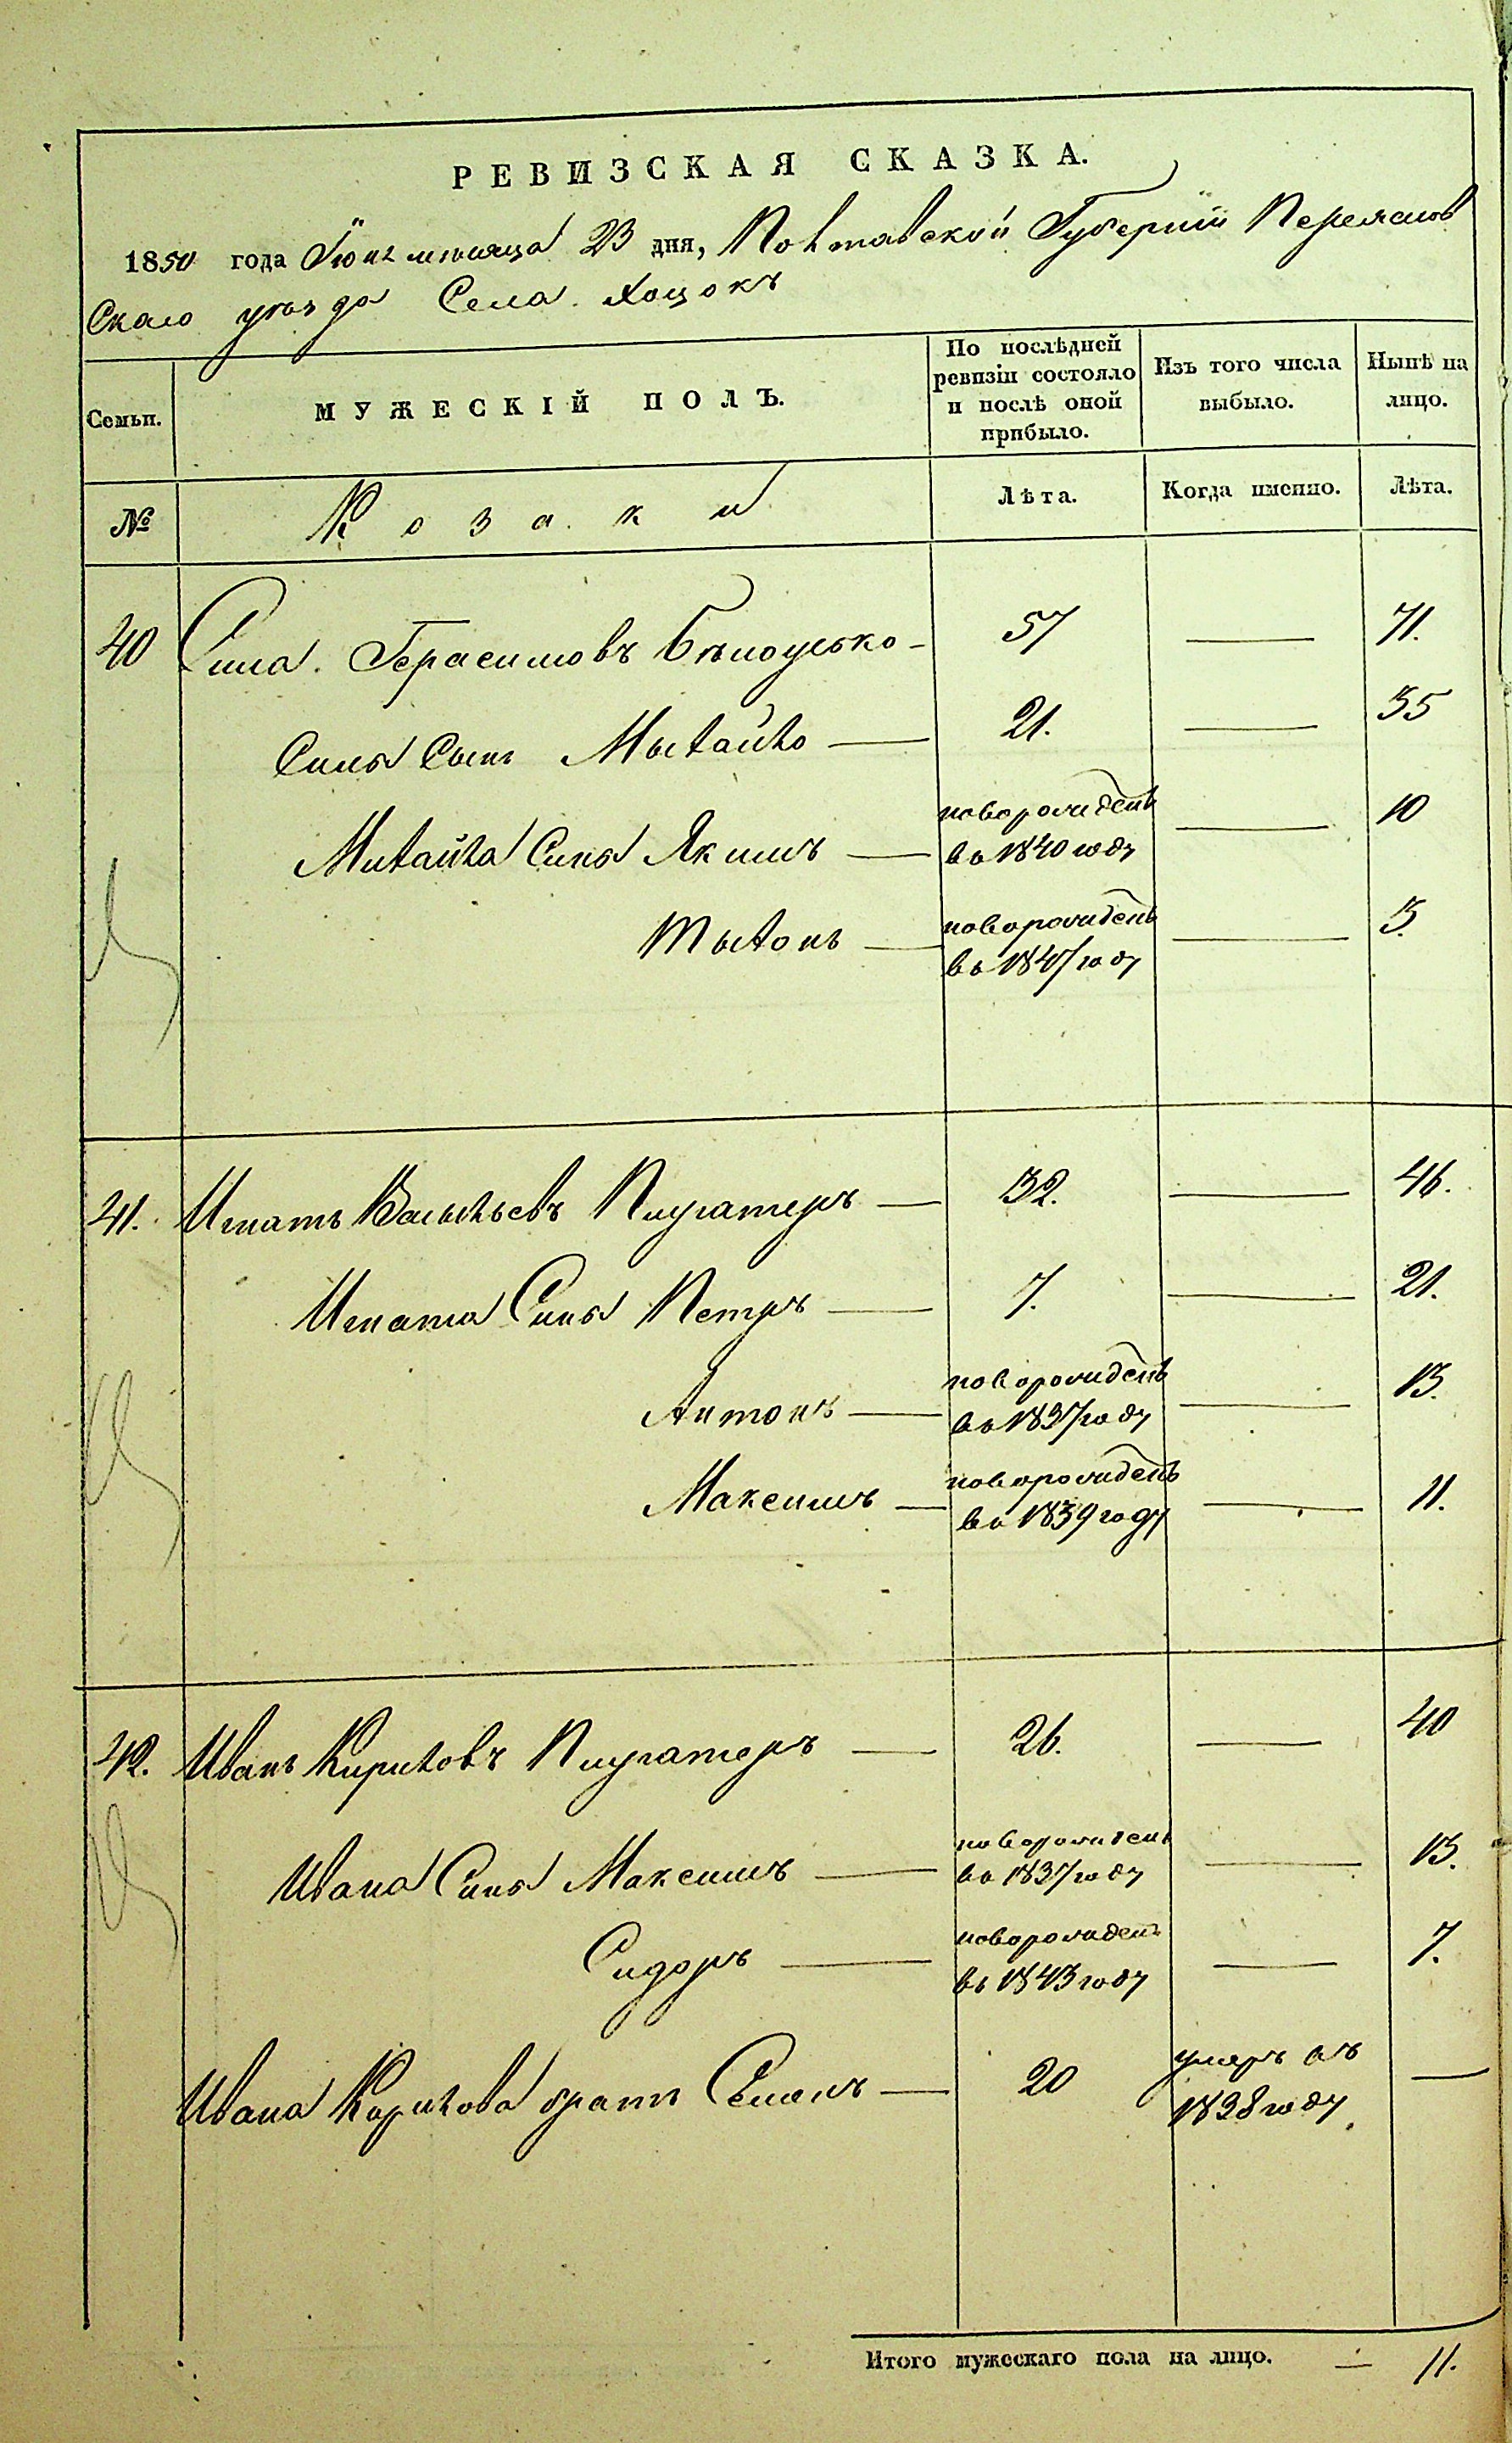 РЕВИЗСКАЯ СКАЗКА.
1850 года Іюня мѣсяца 23 дня, Полтавской Губерніи Переяслов
Скаго уѣзда Села Хоцокъ
Семьи. МУЖЕСКІЙ ПОЛЪ. По послѣдней ревизіи состояло и послѣ оной прибыло. Изъ того числа выбыло. Нынѣ на лицо.
№ Козаки Лѣта. Когда именно. Лѣта.
40 Сила Герасимовъ Бѣлоусько - 57 — 71.
Силы Сынъ Мыхайло — 21. — 35
Михайла Сины Якимъ — новорожденъ — 10
въ 1840 году
Тыхонъ — новорожденъ — 3.
въ 1847 году
41. Игнатъ Васыльевъ Плугатеръ — 32. — 46.
Игната Сины Петръ — 7. — 21.
Антонъ — новорожденъ — 13.
въ 1837 году
Максимъ — новорожденъ — 11.
въ 1839 году
42. Иванъ Кириловъ Плугатеръ — 26. — 40
Ивана Сины Максимъ — новорожденъ — 13.
въ 1837 году
Сидоръ — новорожденъ — 7.
въ 1843 году
Ивана Кирилова братъ Семенъ — 20 умеръ въ —
1838 году
Итого мужескаго пола на лицо. — 11.